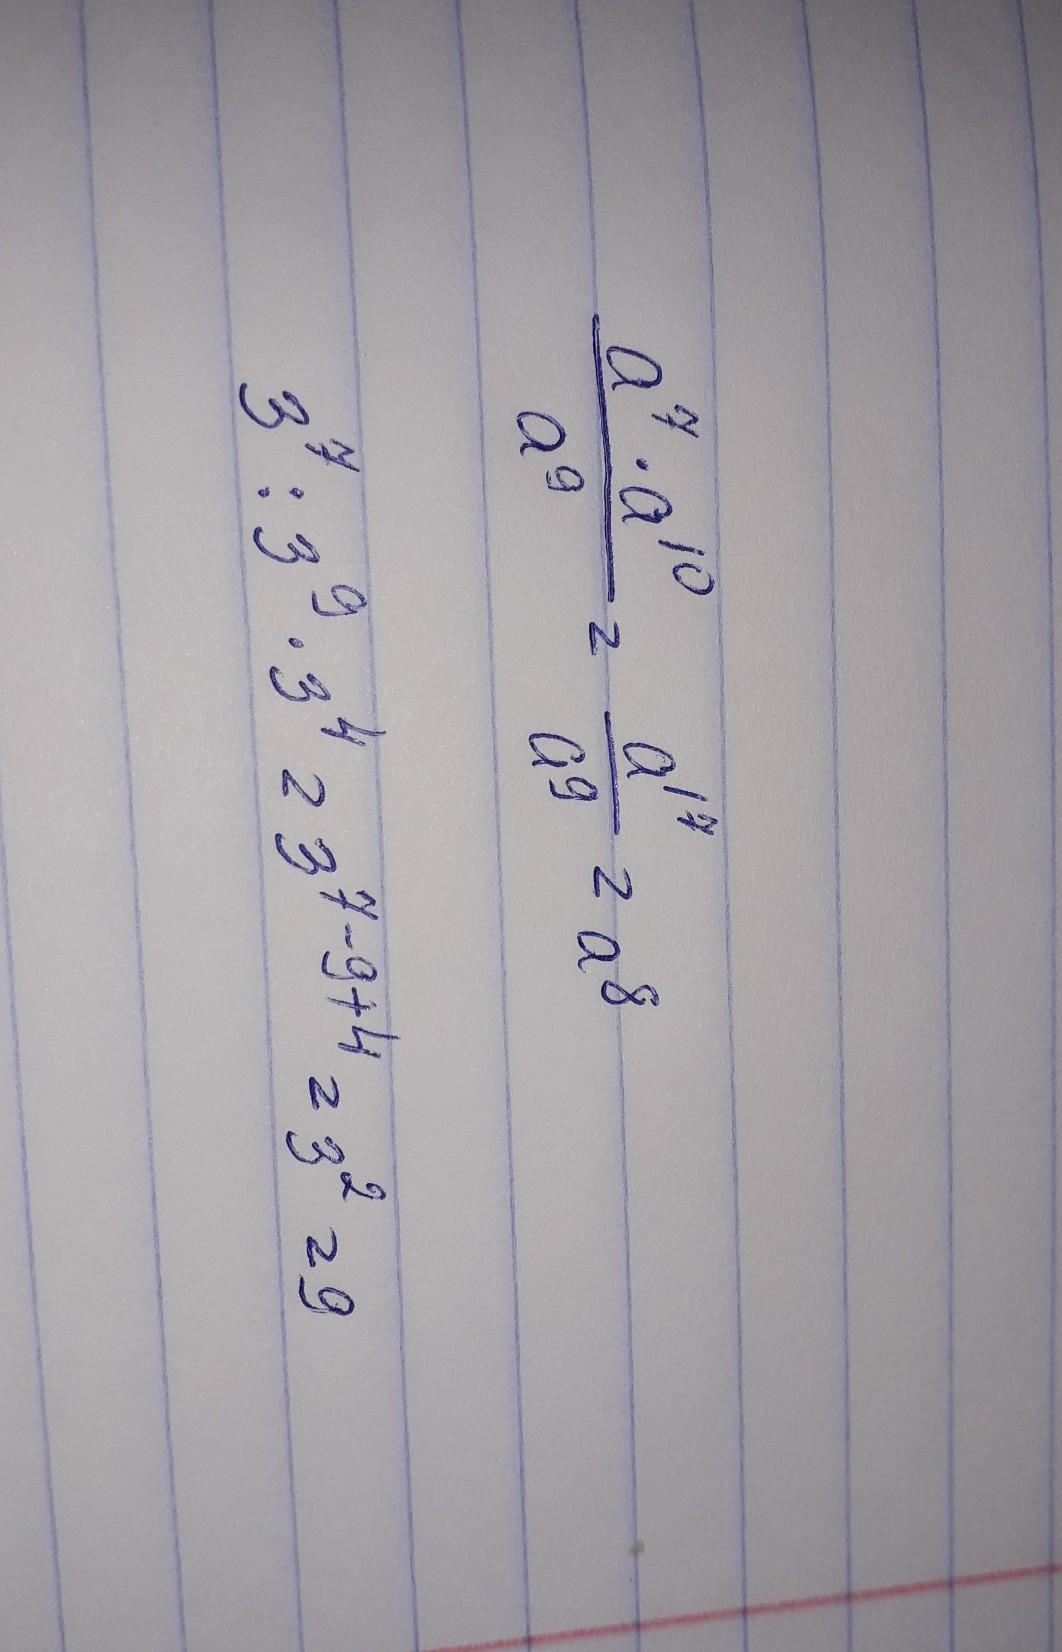 a⁷·a¹⁰/a⁹ = a¹⁷/a⁹ = a⁸
3⁷:3⁹·3⁴ = 3⁷⁻⁹⁺⁴ = 3² = 9